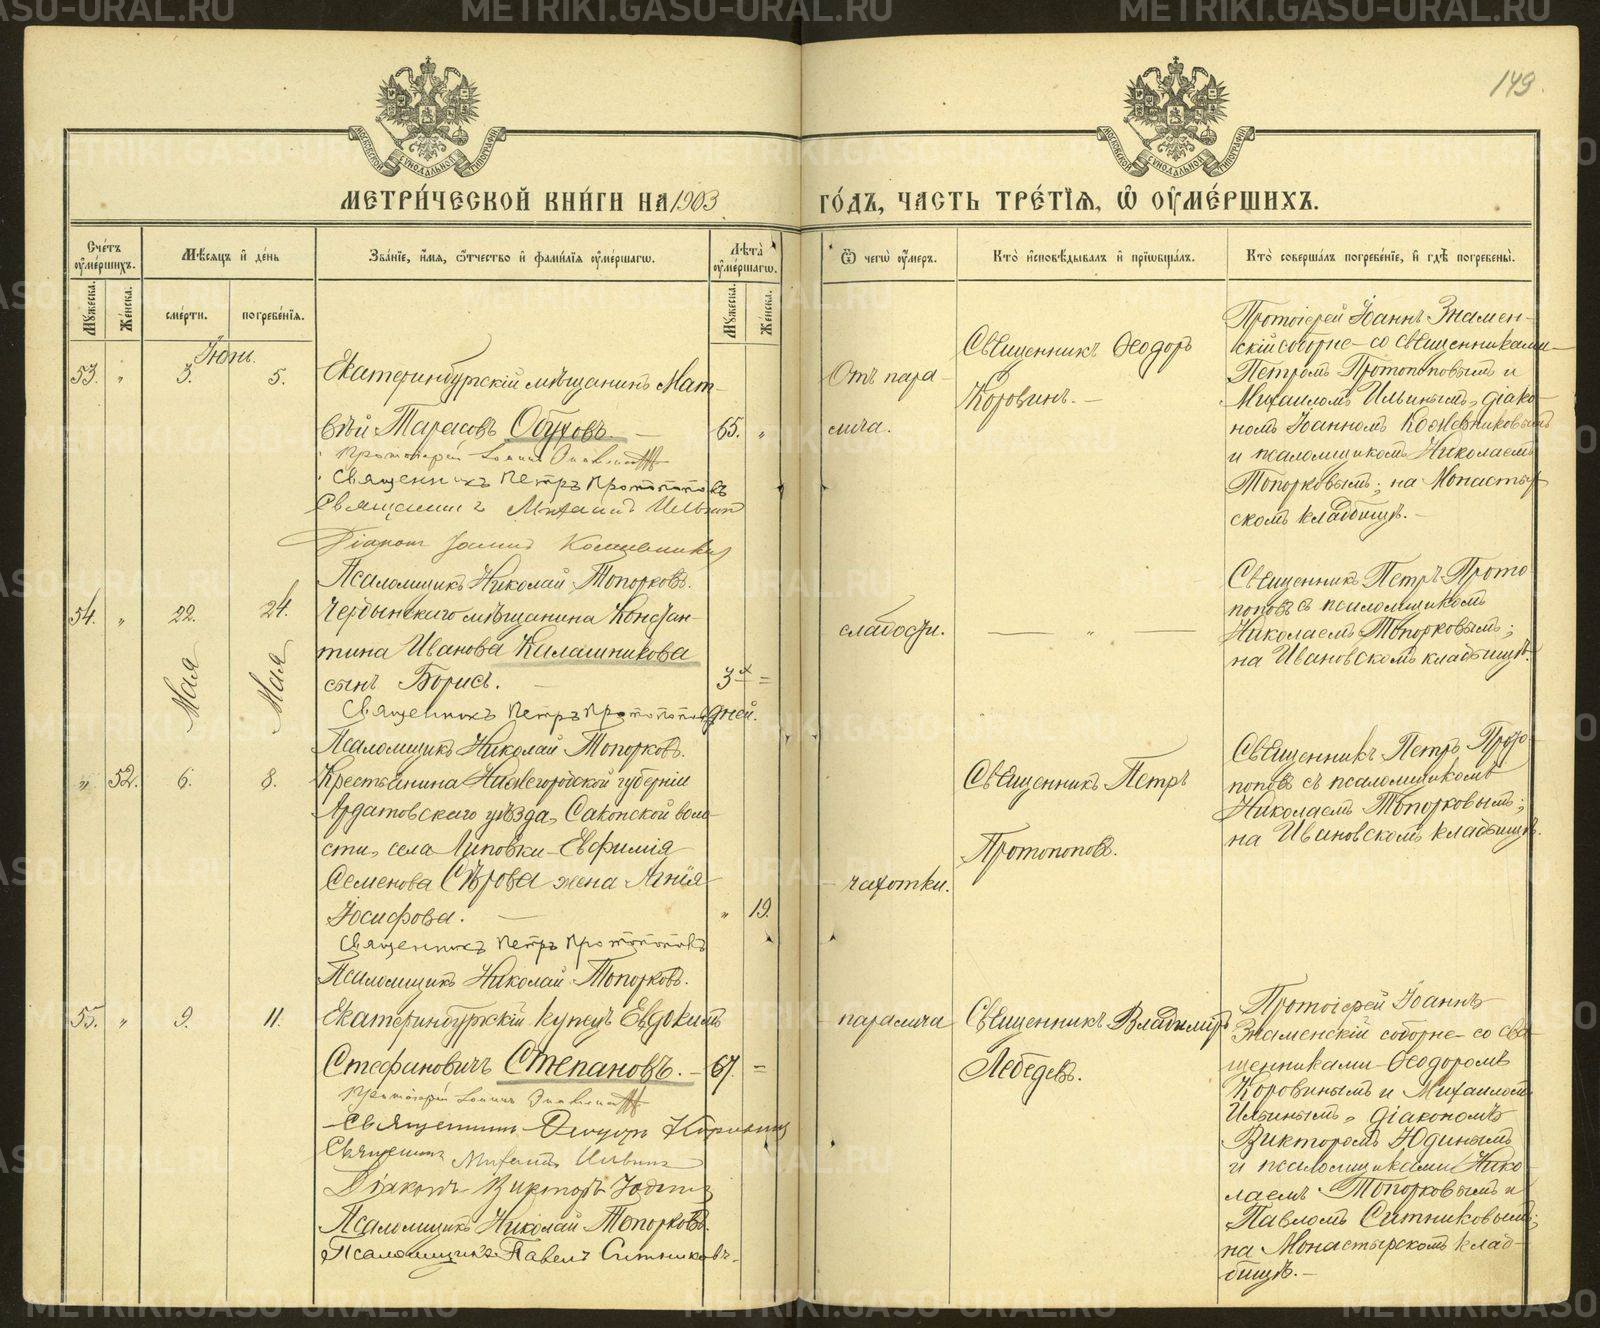 149
МЕТРИ́ЧЕСКОЙ КНИ́ГИ НА 1903
ГО́ДЪ, ЧАСТЬ ТРЕ́ТІЯ, Ѿ ОУМЕ́РШИХЪ.
Счетъ оумершихъ.
Мужеска.
Женска.
Мѣсяцъ и день
смерти.
погребенія.
Званіе, имя, отчество и фамилія оумершагѡ.
Лѣта оумершагѡ.
Мужеска.
Женска.
Ѿ чегѡ оумеръ.
Кто исповѣдывалъ и пріобщалъ.
Кто совершалъ погребеніе, и гдѣ погребены.
Іюнь.
53. " 3. 5.
Екатеринбургскій мѣщанинъ Мат-
вѣй Тарасовъ Обуховъ. —
65. "
Протоіерей Іоаннъ Знаменскій
Священникъ Петръ Протопоповъ
Священникъ Михаилъ Ильинъ
Діаконъ Іоаннъ Кожевниковъ
Псаломщикъ Николай Топорковъ.
Отъ пара-
лича.
Священникъ Ѳеодоръ
Коровинъ. —
Протоіерей Іоаннъ Знамен-
скій соборне со священниками
Петромъ Протопоповымъ и
Михаиломъ Ильинымъ, діако-
номъ Іоанномъ Кожевниковымъ
и псаломщикомъ Николаемъ
Топорковымъ; на Монастыр-
скомъ кладбищѣ. —
54. " 22. 24.
Мая Мая
Чердынскаго мѣщанина Констан-
тина Иванова Калашникова
сынъ Борисъ. —
3х =
дней.
Священникъ Петръ Протопоповъ
Псаломщикъ Николай Топорковъ.
слабости.
— " —
Священникъ Петръ Прото-
поповъ съ псаломщикомъ
Николаемъ Топорковымъ;
на Ивановскомъ кладбищѣ.
" 52. 6. 8.
Крестьянина Нижегородской губерніи
Ардатовскаго уѣзда, Саконской воло-
сти, села Липовки Евфимія
Семенова Сѣрова жена Агнія
Іосифова. —
" 19.
Священникъ Петръ Протопоповъ
Псаломщикъ Николай Топорковъ.
чахотки.
Священникъ Петръ
Протопоповъ.
Священникъ Петръ Прото-
поповъ съ псаломщикомъ
Николаемъ Топорковымъ;
на Ивановскомъ кладбищѣ.
55. " 9. 11.
Екатеринбургскій купецъ Евдокимъ
Стефановичъ Степановъ. —
67. =
Протоіерей Іоаннъ Знаменскій
Священникъ Ѳеодоръ Коровинъ
Священникъ Михаилъ Ильинъ
Діаконъ Викторъ Юдинъ
Псаломщикъ Николай Топорковъ.
Псаломщикъ Павелъ Ситниковъ.
паралича
Священникъ Владимиръ
Лебедевъ.
Протоіерей Іоаннъ
Знаменскій соборне со свя-
щенниками Ѳеодоромъ
Коровинымъ и Михаиломъ
Ильинымъ, діакономъ
Викторомъ Юдинымъ
и псаломщиками Нико-
лаемъ Топорковымъ и
Павломъ Ситниковымъ;
на Монастырскомъ клад-
бищѣ. —
METRIKI.GASO-URAL.RU